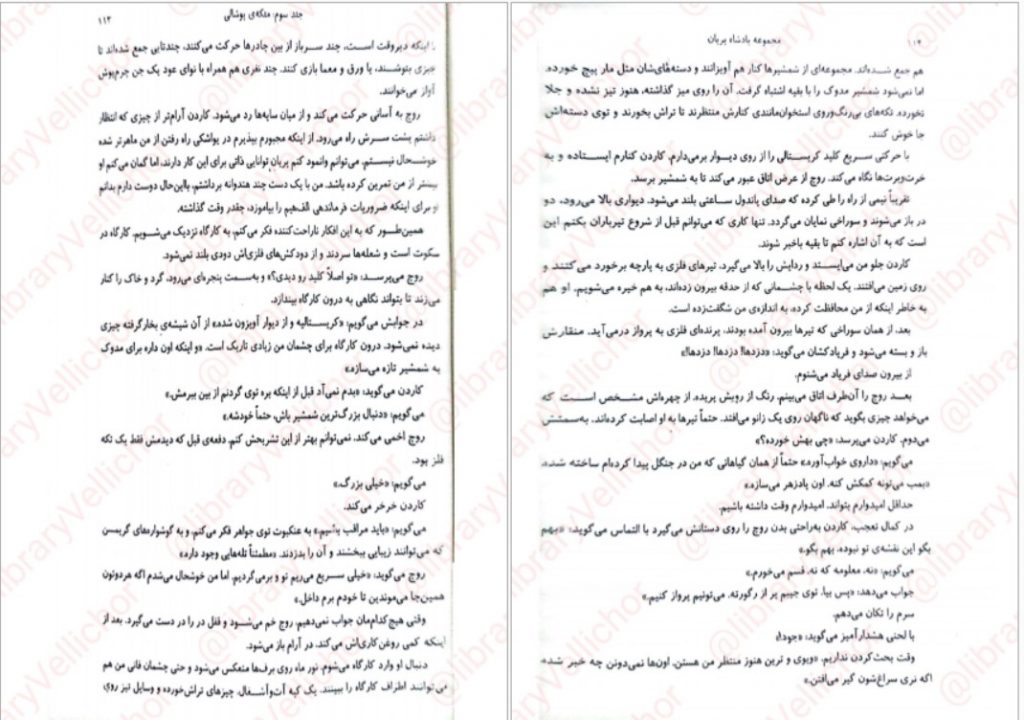 جلد سوم: ملکه‌ی پوشالی
۱۱۳
اینکه دیروقت است، چند سرباز از بین چادرها حرکت می‌کنند، چندتایی جمع شده‌اند تا
چیزی بنوشند، یا ورق و معما بازی کنند. چند نفری هم همراه با نوای عود یک جن چرم‌پوش
آواز می‌خوانند.
روچ به آسانی حرکت می‌کند و از میان سایه‌ها رد می‌شود. کاردن آرام‌تر از چیزی که انتظار
داشتم پشت سرش راه می‌رود. از اینکه مجبورم بپذیرم در یواشکی راه رفتن از من ماهرتر شده
خوشحال نیستم. می‌توانم وانمود کنم پریان توانایی ذاتی برای این کار دارند، اما گمان می‌کنم او
بیشتر از من تمرین کرده باشد. من با یک دست چند هندوانه برداشتم. بااین‌حال دوست دارم بدانم
او برای اینکه ضروریات فرماندهی الف‌هیم را بیاموزد، چقدر وقت گذاشته.
همین‌طور که به این افکار ناراحت‌کننده فکر می‌کنم، به کارگاه نزدیک می‌شویم. کارگاه در
سکوت است و شعله‌ها سردند و از دودکش‌های فلزی‌اش دودی بلند نمی‌شود.
روچ می‌پرسد: «تو اصلاً کلید رو دیدی؟» و به‌سمت پنجره‌ای می‌رود، گرد و خاک را کنار
می‌زند تا بتواند نگاهی به درون کارگاه بیندازد.
در جوابش می‌گویم: «کریستالیه و از دیوار آویزون شده.» از آن شیشه‌ی بخارگرفته چیزی
دیده نمی‌شود. درون کارگاه برای چشمان من زیادی تاریک است. «و اینکه اون داره برای مدوک
یه شمشیر تازه می‌سازه.»
کاردن می‌گوید: «بدم نمی‌آد قبل از اینکه بره توی گردنم از بین ببرمش.»
می‌گویم: «دنبال بزرگ‌ترین شمشیر باش، حتماً خودشه.»
روچ اخمی می‌کند. نمی‌توانم بهتر از این تشریحش کنم. دفعه‌ی قبل که دیدمش فقط یک تکه
فلز بود.
می‌گویم: «خیلی بزرگ.»
کاردن خرخر می‌کند.
می‌گویم: «باید مراقب باشیم.» به عنکبوت توی جواهر فکر می‌کنم، و به گوشواره‌های گریمسن
که می‌توانند زیبایی ببخشند و آن را بدزدند. «مطمئناً تله‌هایی وجود داره.»
روچ می‌گوید: «خیلی سریع می‌ریم تو و برمی‌گردیم. اما من خوشحال می‌شدم اگه هردوتون
همین‌جا می‌موندین تا خودم برم داخل.»
وقتی هیچ‌کدام‌مان جواب نمی‌دهیم، روچ خم می‌شود و قفل در را در دست می‌گیرد. بعد از
اینکه کمی روغن‌کاری‌اش می‌کند، در آرام باز می‌شود.
دنبال او وارد کارگاه می‌شوم. نور ماه روی برف‌ها منعکس می‌شود و حتی چشمان فانی من هم
می‌توانند اطراف کارگاه را ببینند. یک کپه آت‌وآشغال، چیزهای تراش‌خورده و وسایل تیز روی
مجموعه پادشاه پریان
۱۱۴
هم جمع شده‌اند. مجموعه‌ای از شمشیرها کنار هم آویزانند و دسته‌های‌شان مثل مار پیچ خورده.
اما نمی‌شود شمشیر مدوک را با بقیه اشتباه گرفت. آن را روی میز گذاشته، هنوز تیز نشده و جلا
نخورده. تکه‌های بی‌رنگ‌وروی استخوان‌مانندی کنارش منتظرند تا تراش بخورند و توی دسته‌اش
جا خوش کنند.
با حرکتی سریع کلید کریستالی را از روی دیوار برمی‌دارم. کاردن کنارم ایستاده و به
خرت‌وپرت‌ها نگاه می‌کند. روچ از عرض اتاق عبور می‌کند تا به شمشیر برسد.
تقریباً نیمی از راه را طی کرده که صدای پاندول ساعتی بلند می‌شود. دیواری بالا می‌رود، دو
در باز می‌شوند و سوراخی نمایان می‌گردد. تنها کاری که می‌توانم قبل از شروع تیرباران بکنم این
است که به آن اشاره کنم تا بقیه باخبر شوند.
کاردن جلو من می‌ایستد و ردایش را بالا می‌گیرد. تیرهای فلزی به پارچه برخورد می‌کنند و
روی زمین می‌افتند. یک لحظه با چشمانی که از حدقه بیرون زده‌اند، به هم خیره می‌شویم. او هم
به خاطر اینکه از من محافظت کرده، به اندازه‌ی من شگفت‌زده است.
بعد، از همان سوراخی که تیرها بیرون آمده بودند، پرنده‌ای فلزی به پرواز درمی‌آید. منقارش
باز و بسته می‌شود و فریادکشان می‌گوید: «دزدها! دزدها! دزدها!»
از بیرون صدای فریاد می‌شنوم.
بعد روچ را آن‌طرف اتاق می‌بینم. رنگ از رویش پریده. از چهره‌اش مشخص است که
می‌خواهد چیزی بگوید که ناگهان روی یک زانو می‌افتد. حتماً تیرها به او اصابت کرده‌اند. به‌سمتش
می‌دوم. کاردن می‌پرسد: «چی بهش خورده؟»
می‌گویم: «داروی خواب‌آوره.» حتماً از همان گیاهانی که من در جنگل پیدا کرده‌ام ساخته شده.
«بمب می‌تونه کمکش کنه. اون پادزهر می‌سازه.»
حداقل امیدوارم بتواند. امیدوارم وقت داشته باشیم.
در کمال تعجب، کاردن به‌راحتی بدن روچ را روی دستانش می‌گیرد با التماس می‌گوید: «بهم
بگو این نقشه‌ی تو نبوده. بهم بگو.»
می‌گویم: «نه. معلومه که نه. قسم می‌خورم.»
جواب می‌دهد: «پس بیا. توی جیبم پر از رگورته. می‌تونیم پرواز کنیم.»
سرم را تکان می‌دهم.
با لحنی هشدارآمیز می‌گوید: «جود!»
وقت بحث‌کردن نداریم. «ویوی و ترین هنوز منتظر من هستن. اون‌ها نمی‌دونن چه خبر شده.
اگه نری سراغ‌شون گیر می‌افتن.»
@libraryVellichor